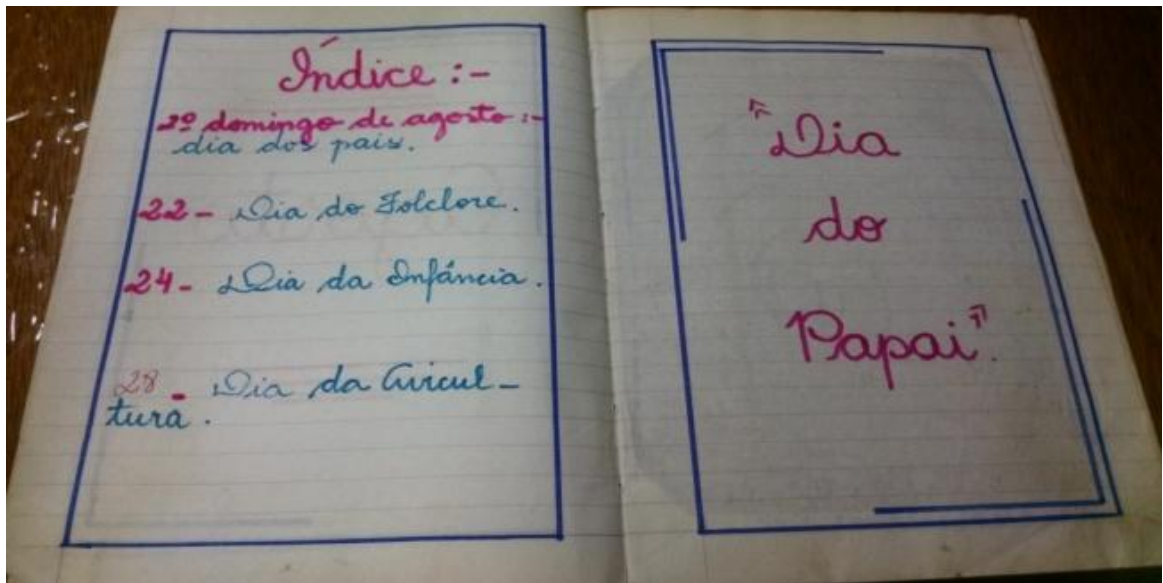 Índice :-
2º domingo de agosto :-
dia dos pais.
22 - Dia do Folclore.
24 - Dia da Infância.
28 - Dia da Avicul-
tura.
"Dia
do
Papai".